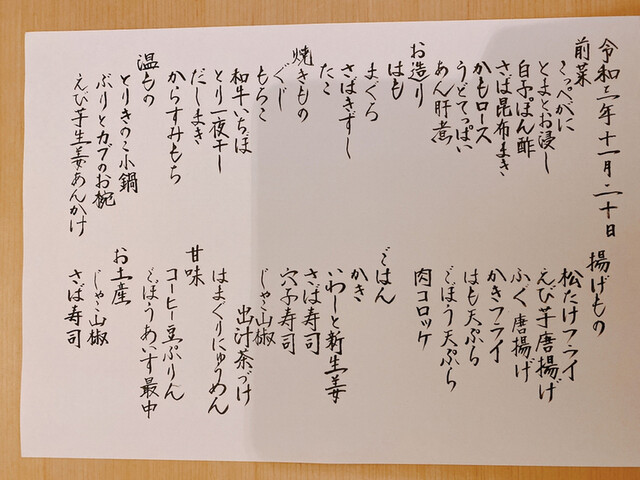 令和三年十一月二十日
前菜
こっぺがに
とまとお浸し
白子ぽん酢
さば昆布まき
かもロース
うどてっぱい
あん肝煮
お造り
はも
まぐろ
さばきずし
たこ
焼きもの
ぐじ
もろこ
和牛いちぼ
とり一夜干し
だしまき
からすみもち
温もの
とりきのこ小鍋
ぶりとカブのお椀
えび芋生姜あんかけ
揚げもの
松たけフライ
えび芋唐揚げ
ふぐ唐揚げ
かきフライ
はも天ぷら
ごぼう天ぷら
肉コロッケ
ごはん
かき
いわしと新生姜
さば寿司
穴子寿司
じゃこ山椒
出汁茶づけ
はまぐりにゅうめん
甘味
コーヒー豆ぷりん
ごぼうあいす最中
お土産
じゃこ山椒
さば寿司